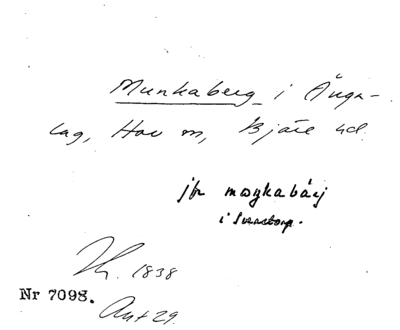 Munkaberg i Änga-
lag, Hov sn, Bjäre hd.
jfr maŋkabárj
i Svenstorp.
1838
Nr 7098.
Ant 29.